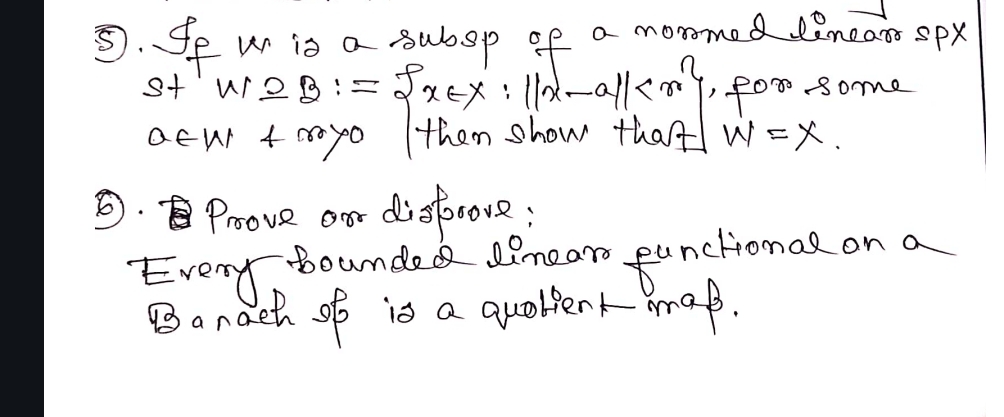 ⑤. If W is a subsp of a normed linear sp X
st W ⊇ B := {x ∈ X : ||x-a|| < r}, for some
a ∈ W & r > 0 then show that W = X.
⑥. Prove or disprove:
Every bounded linear functional on a
Banach sp is a quotient map.